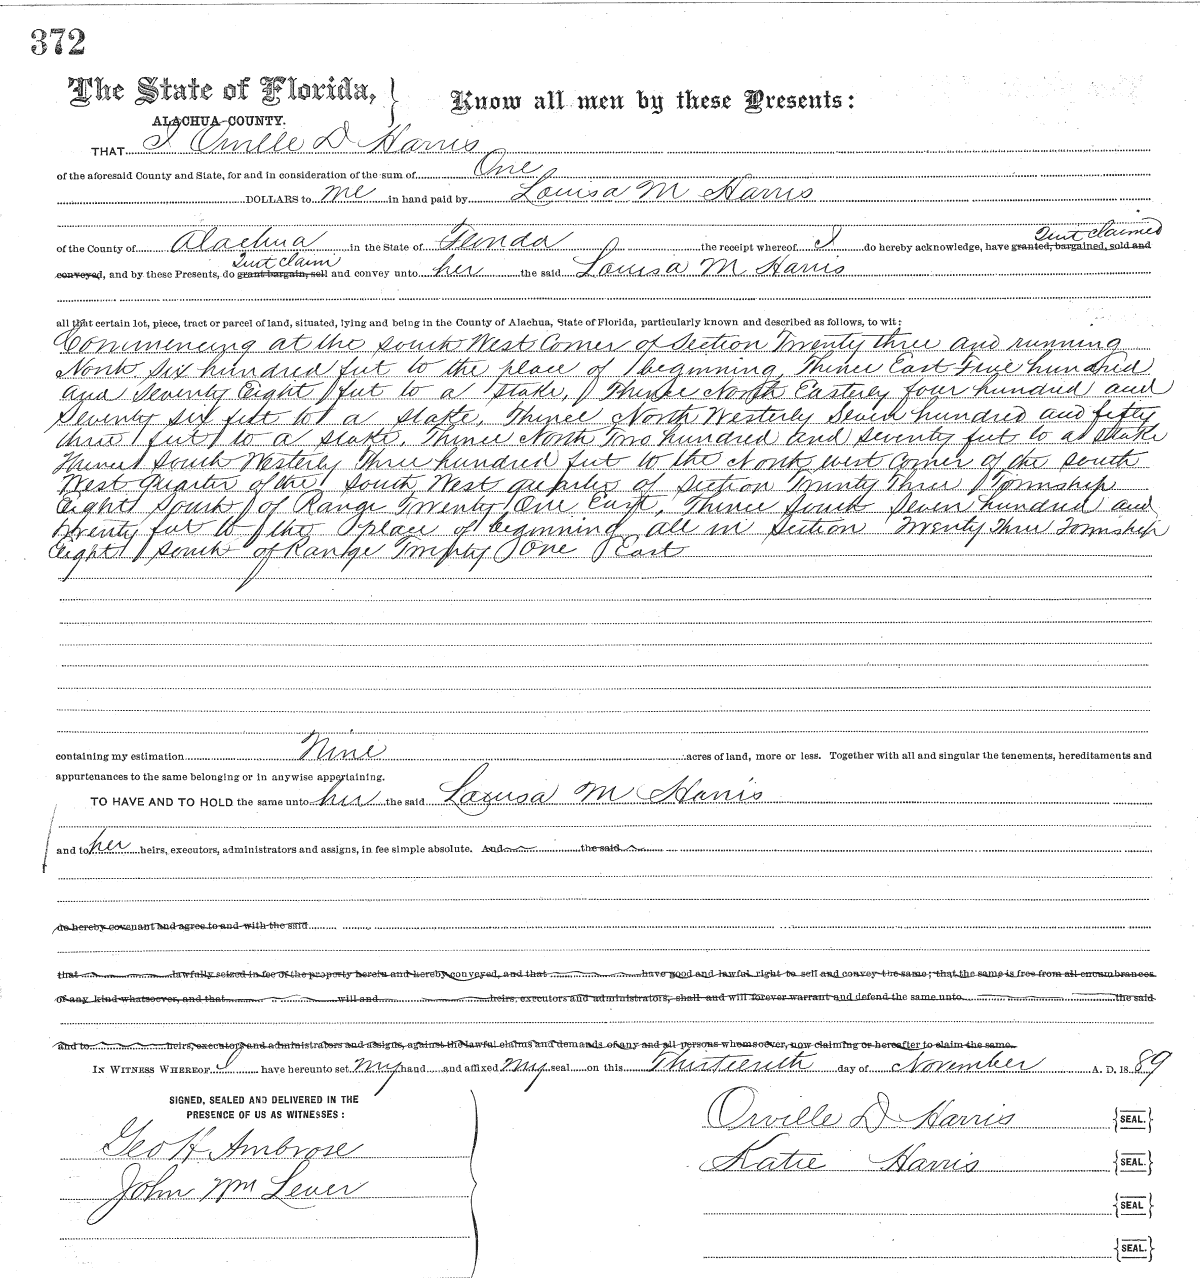 372
The State of Florida, } Know all men by these Presents:
ALACHUA COUNTY.
THAT I Orville D Harris
of the aforesaid County and State, for and in consideration of the sum of One
DOLLARS to me in hand paid by Louisa M Harris
Quit claimed
of the County of Alachua in the State of Florida the receipt whereof I do hereby acknowledge, have granted, bargained, sold and
Quit claim
conveyed, and by these Presents, do grant bargain, sell and convey unto her the said Louisa M Harris
all that certain lot, piece, tract or parcel of land, situated, lying and being in the County of Alachua, State of Florida, particularly known and described as follows, to wit:
Commencing at the South West Corner of Section Twenty three and running
North Six hundred feet to the place of beginning, Thence East Five hundred
and Seventy Eight feet to a stake, Thence North Easterly four hundred and
Seventy six feet to a stake, Thence North Westerly Seven hundred and fifty
three feet to a stake, Thence North Two hundred and seventy feet to a stake
Thence South Westerly Three hundred feet to the North west Corner of the South
West Quarter of the South West quarter of Section Twenty Three Township
Eight South of Range Twenty One East, Thence South Seven hundred and
twenty feet to the place of beginning all in Section Twenty Three Township
Eight South of Range Twenty One East
containing my estimation Nine acres of land, more or less. Together with all and singular the tenements, hereditaments and
appurtenances to the same belonging or in anywise appertaining.
TO HAVE AND TO HOLD the same unto her the said Louisa M Harris
and to her heirs, executors, administrators and assigns, in fee simple absolute. And the said
do hereby covenant and agree to and with the said
that lawfully seized in fee of the property herein and hereby conveyed, and that have good and lawful right to sell and convey the same; that the same is free from all encumbrances
of any kind whatsoever, and that will and heirs, executors and administrators, shall and will forever warrant and defend the same unto the said
and to heirs, executors and administrators and assigns, against the lawful claims and demands of any and all persons whomsoever, now claiming or hereafter to claim the same.
IN WITNESS WHEREOF I have hereunto set my hand and affixed my seal on this Thirteenth day of November A. D. 1889
SIGNED, SEALED AND DELIVERED IN THE
PRESENCE OF US AS WITNESSES:
Geo H Ambrose
John Wm Lever
Orville D Harris {SEAL.}
Katie Harris {SEAL.}
{SEAL}
{SEAL.}